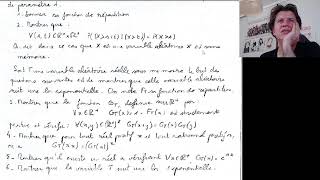 de paramètre λ.
1. Donner sa fonction de répartition
2. Montrer que :
∀(a,b) ∈ ℝ⁺×ℝ⁺ P(X>a+b | X>b) = P(X>a)
On dit dans ce cas que X est une variable aléatoire sans
mémoire.
Soit T une variable aléatoire réelle sans mémoire. Le but des
questions suivantes est de montrer que cette variable aléatoire
suit une loi exponentielle. On note F_T sa fonction de répartition.
3. Montrer que la fonction G_T définie sur ℝ⁺ par
∀x∈ℝ⁺ G_T(x) = 1 - F_T(x) est strictement
positive et vérifie : ∀(x,y) ∈ G_T(x+y) = G_T(x) G_T(y)
4. Montrer que pour tout réel positif x et tout rationnel positif
on a
5. Montrer qu'il existe un réel a vérifiant ∀x∈ℝ⁺ G_T(x) =
6. Montrer que la variable T suit une loi exponentielle.